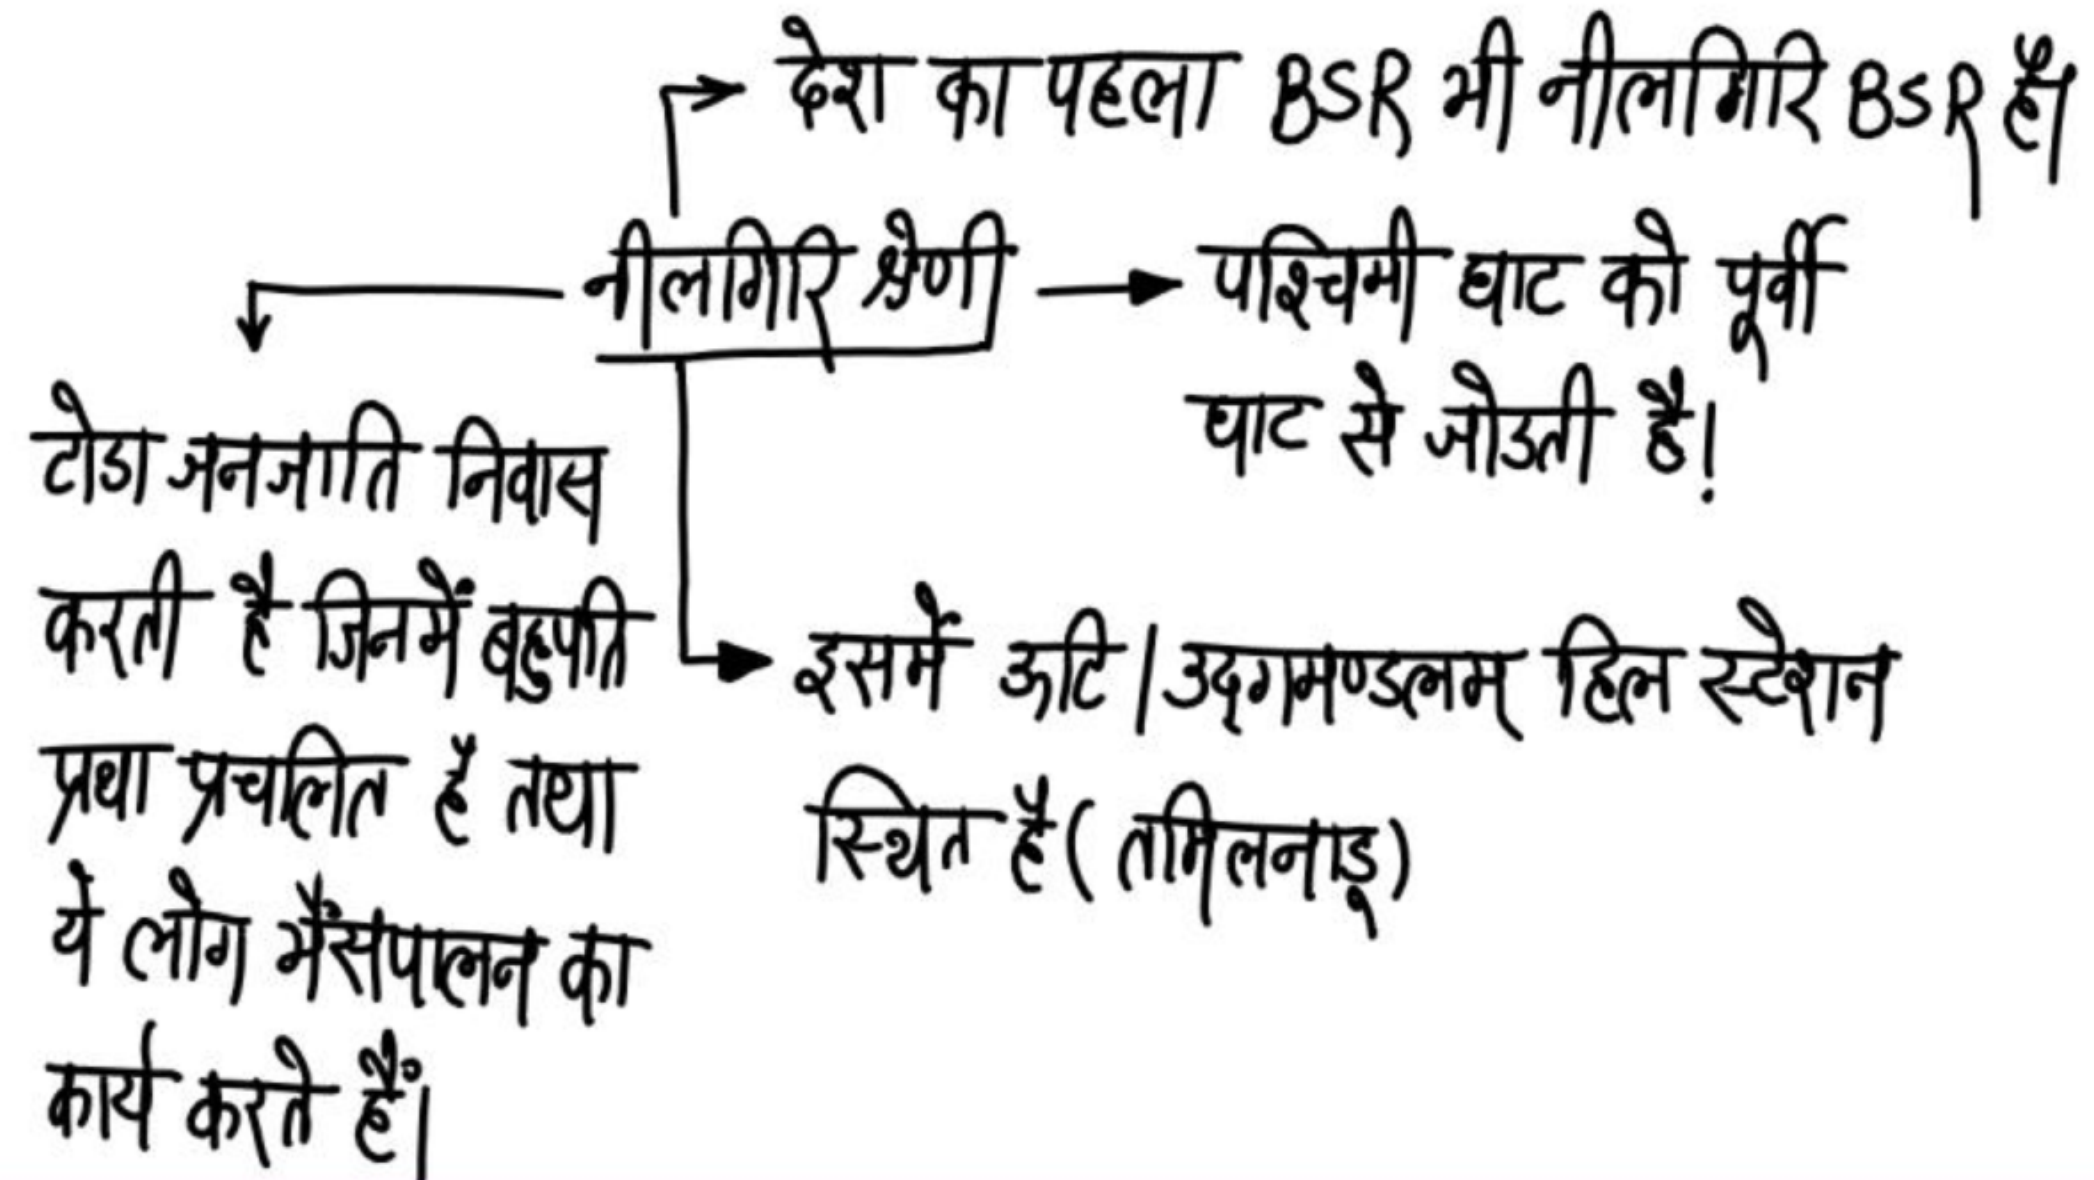 देश का पहला BSR भी नीलगिरि BSR है।
नीलगिरि श्रेणी
पश्चिमी घाट को पूर्वी
घाट से जोडती है!
टोडा जनजाति निवास
करती है जिनमें बहुपति
प्रथा प्रचलित है तथा
ये लोग भैंसपालन का
कार्य करते हैं।
इसमें ऊटि/उद्गमण्डलम् हिल स्टेशन
स्थित है (तमिलनाडू)